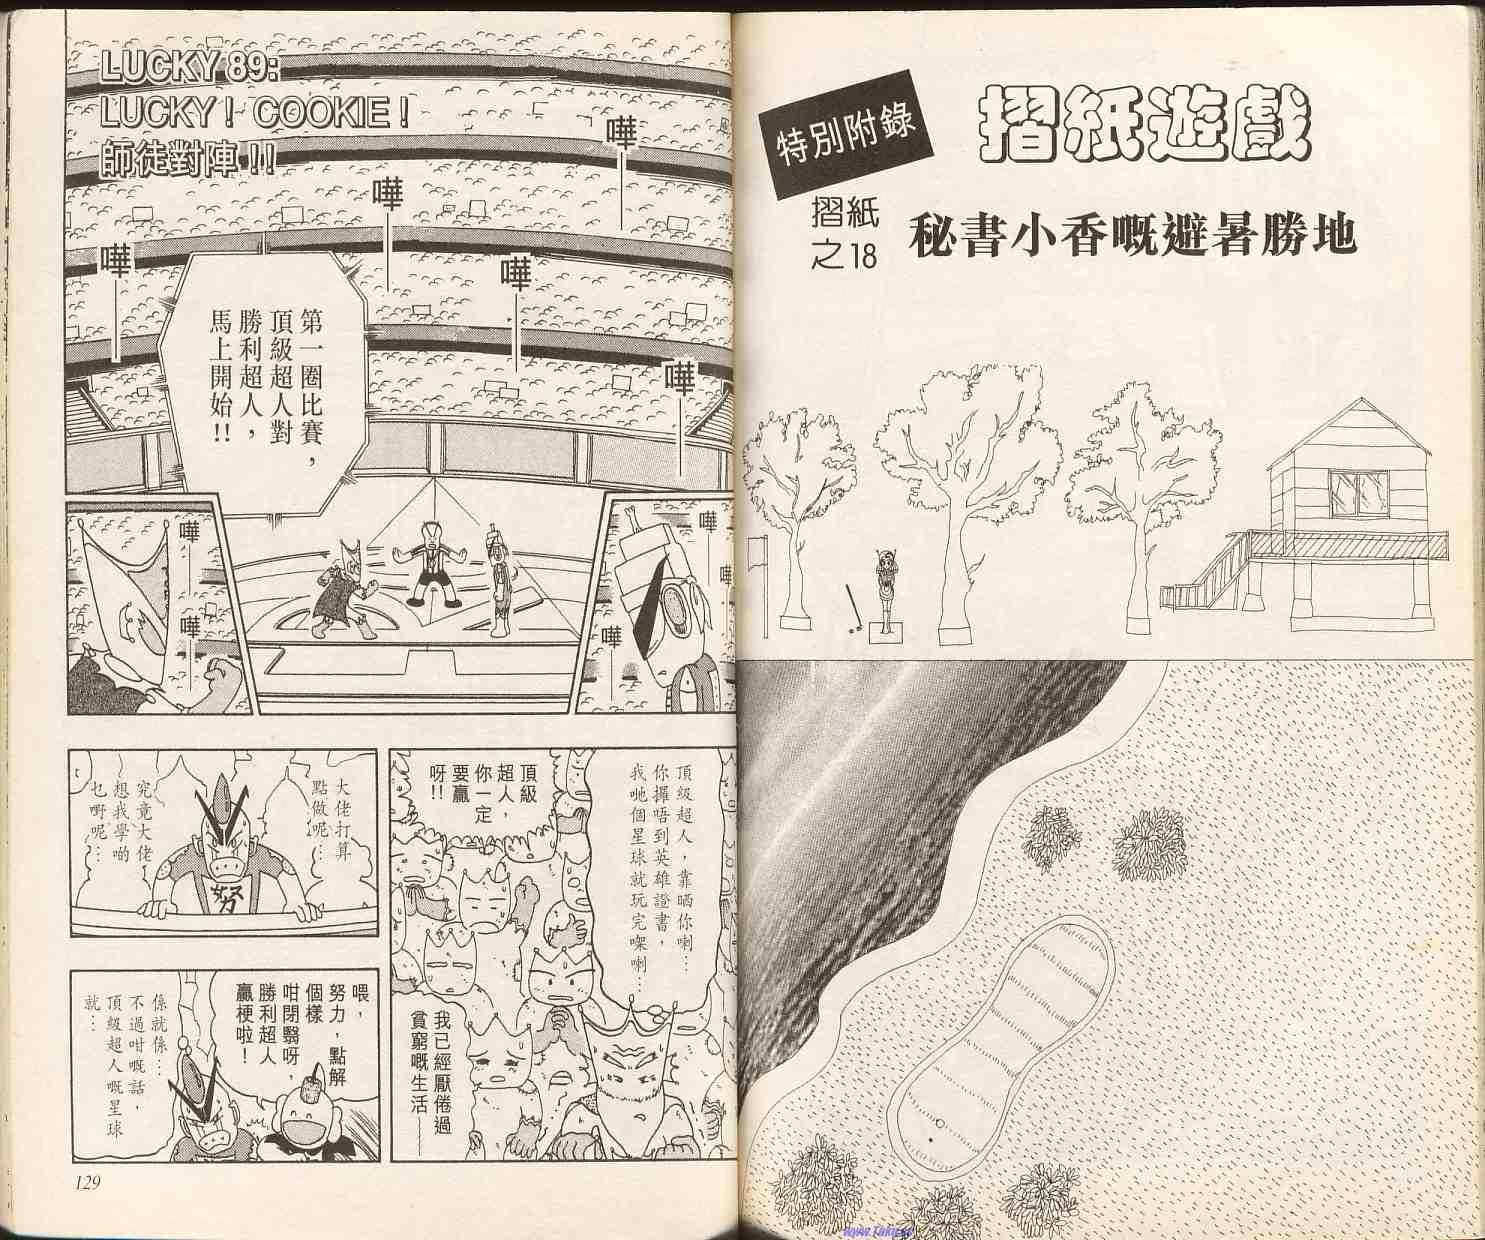 特別附錄
摺紙遊戲
摺紙
之18
秘書小香嘅避暑勝地
LUCKY 89:
LUCKY! COOKIE!
師徒對陣!!
嘩
嘩
嘩
嘩
嘩
第一圈比賽，
頂級超人對
勝利超人，
馬上開始!!
嘩
嘩
嘩
嘩
嘩
頂級超人，靠晒你喇…
你攞唔到英雄證書，
我哋個星球就玩完㗎喇…
頂級
超人，
你一定
要贏
呀!!
我已經厭倦過
貧窮嘅生活——
大佬打算
點做呢…
究竟大佬
想我學啲
乜嘢呢…
努力
喂，
努力，點解
個樣
咁閉翳呀，
勝利超人
贏梗啦！
係就係…
不過咁嘅話，
頂級超人嘅星球
就…
129